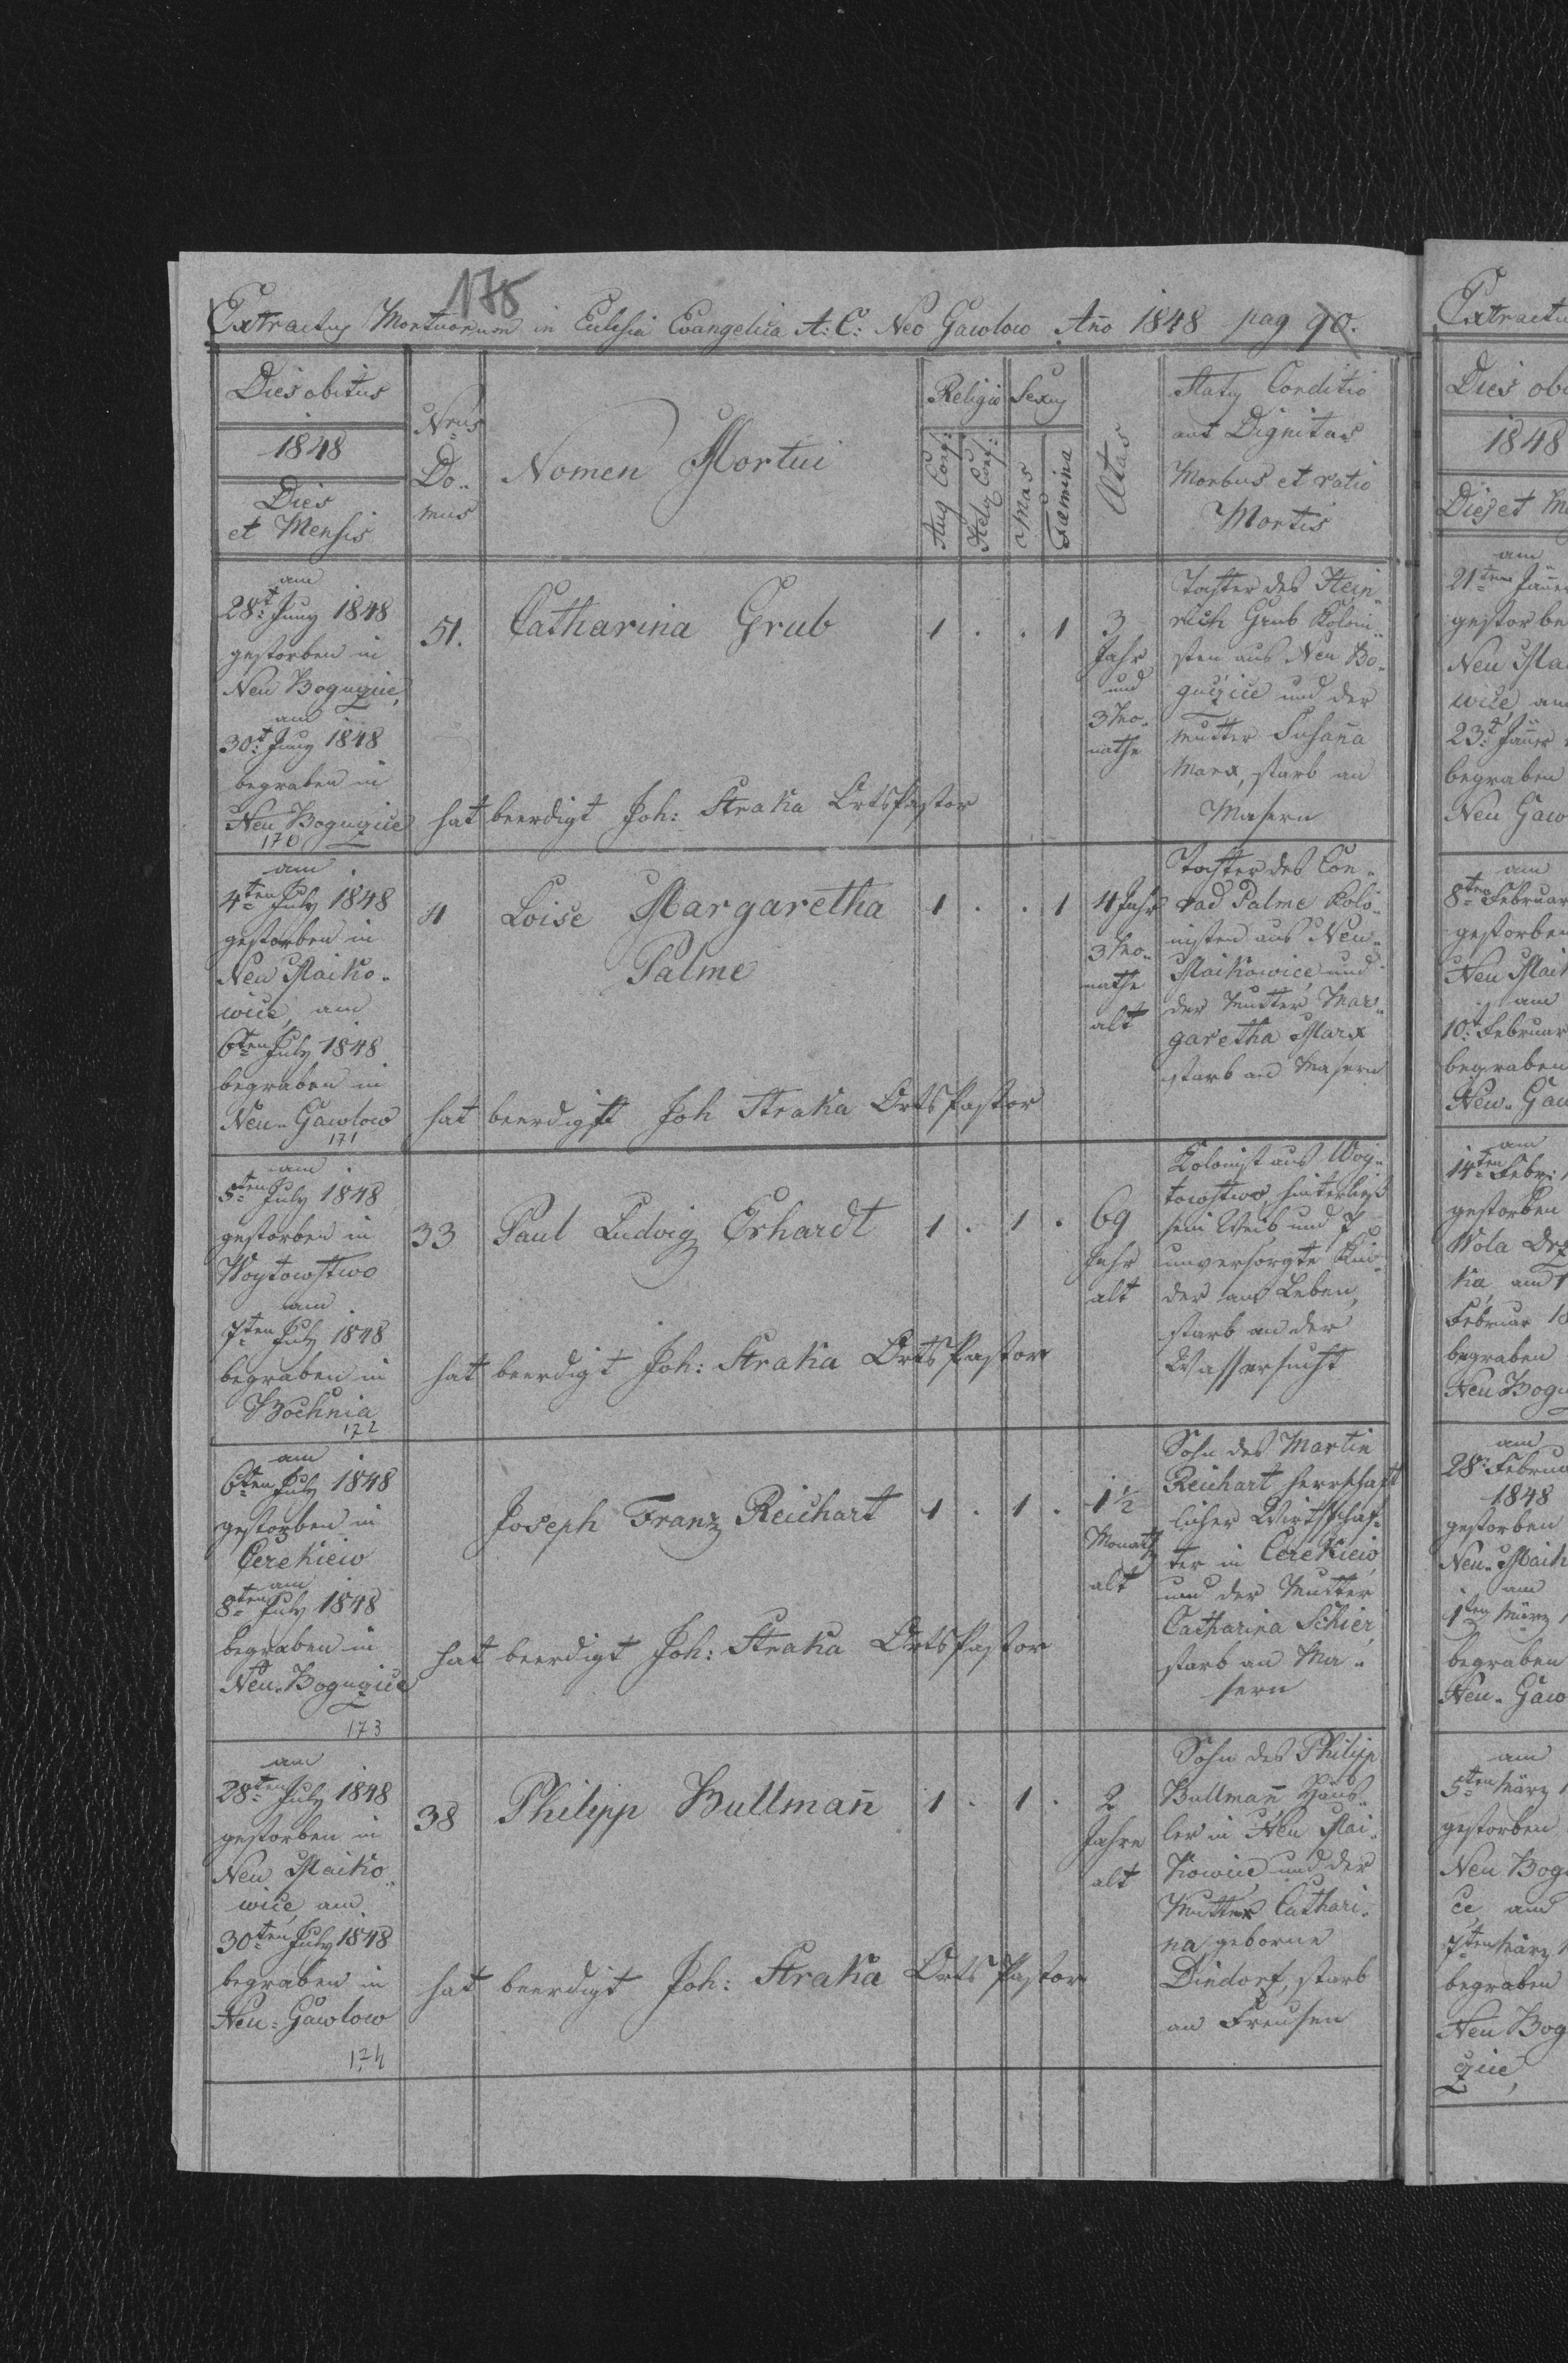 178
Extractus Mortuorum in Eclesia Evangelica A: C: Neo Gawlow Año 1848 pag 90.
Dies obitus
1848
Dies
et Mensis
Nrus
Do-
mus
Nomen Mortui
Religio
Aug Conf:
Helv Conf:
Sexus
Mas
Fæmina
Ætas
Status Conditio
aut Dignitas
Morbus et ratio
Mortis
am
28t Juny 1848
gestorben in
Neu Boguçice,
am
30t Juny 1848
begraben in
Neu Boguçice
170
51.
Catharina Grub
1 . . 1
3
Jahr
und
3 Mo-
nathe
Tochter des Hein-
rich Grub Koloni-
sten aus Neu Bo-
guçice und der
Mutter Susaña
Marx, starb an
Masern
hat beerdigt Joh: Straka OrtsPastor
am
4ten July 1848
gestorben in
Neu Maiko-
wice, am
6ten July 1848
begraben in
Neu-Gawlow
171
4
Loise Margaretha
Palme
1 . . 1
4 Jahr
3 Mo-
nathe
alt
Tochter des Con-
rad Palme Kolo-
nisten aus Neu-
Maikowice und
der Mutter Mar-
garetha Marx
starb an Masern
hat beerdigt Joh Straka Orts Pastor
am
5ten July 1848
gestorben in
Woytowstwo
am
7ten July 1848
begraben in
Bochnia
172
33
Paul Ludvig Erhardt
1 . 1 .
69
Jahr
alt
Kolonist aus Woy-
towstwo, hinterließ
sein Weib und 7
unversorgte Kin-
der am Leben,
starb an der
Wassersucht
hat beerdigt Joh: Straka Orts Pastor
am
6ten July 1848
gestorben in
Cerekiew
am
8ten July 1848
begraben in
Neu-Boguçice
173
Joseph Franz Reichart
1 . 1 .
1 1/2
Monath
alt
Sohn des Martin
Reichart herrschaft
licher Wirthschaf-
ter in Cerekiew,
und der Mutter
Catharina Schier,
starb an Ma-
sern
hat beerdigt Joh: Straka OrtsPastor
am
28ten July 1848
gestorben in
Neu Maiko-
wice, am
30ten July 1848
begraben in
Neu-Gawlow
174
38
Philipp Bullmañ
1 . 1 .
2
Jahre
alt
Sohn des Philipp
Bullmañ Häus-
ler in Neu Mai-
kowice, und der
Mutter Cathari-
na geborne
Diedorf, starb
an Freusen
hat beerdigt Joh: Straka Orts Pastor
Extractu
Dies obi
1848
Dies et M
am
21ten Jäner
gestorbe
Neu Mai
wice, am
23t Jäner
begraben
Neu Gaw
am
8ten Februar
gestorben
Neu Maik
am
10t Februar
begraben
Neu-Gaw
am
14ten Febr:
gestorben
Wola Drz
ka, am 1
Februar 18
begraben
Neu Bogu
am
28t Februa
1848
gestorben
Neu-Maik
am
1ten März
begraben
Neu-Gaw
am
5ten März 1
gestorben
Neu Bogu
ce, am
7ten März
begraben
Neu Bog
çice,